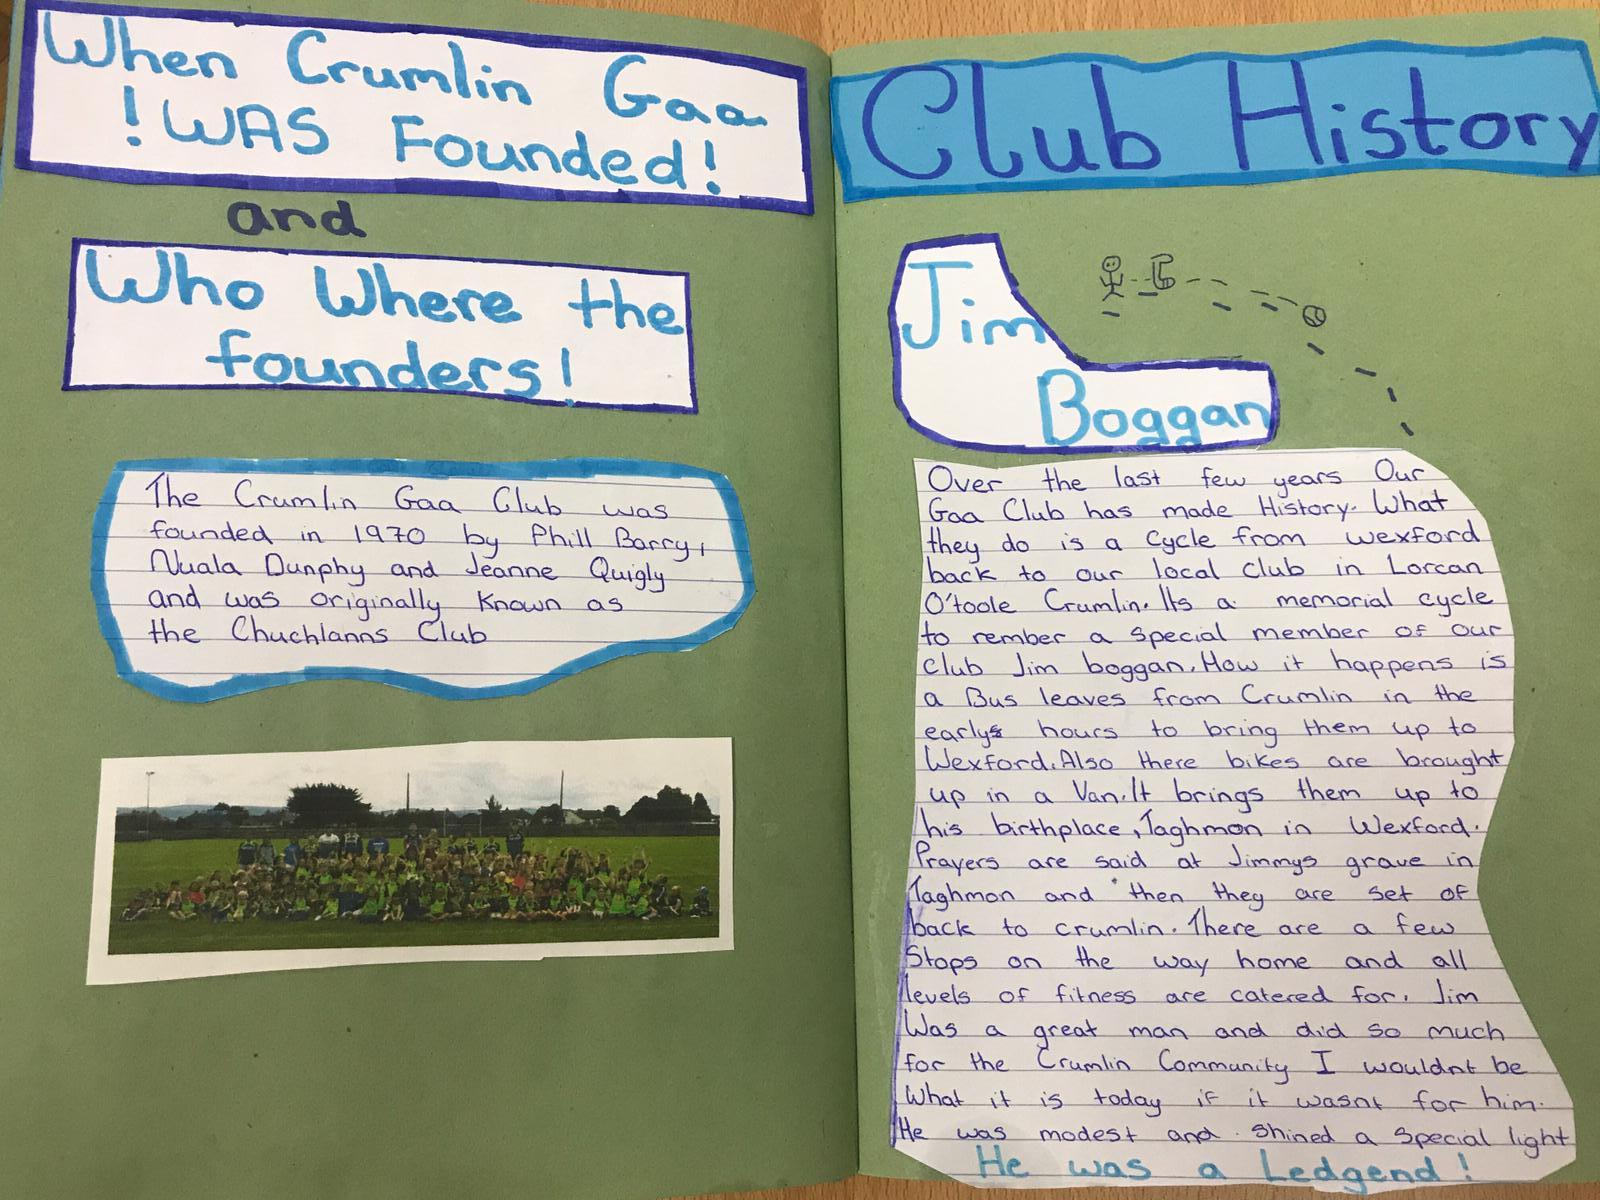 When Crumlin Gaa
! WAS Founded!
and
Who Where the
founders!
The Crumlin Gaa Club was
founded in 1970 by Phill Barry,
Nuala Dunphy and Jeanne Quigly
and was originally Known as
the Chuchlanns Club
Club History
Jim
Boggan
Over the last few years Our
Gaa Club has made History. What
they do is a Cycle from wexford
back to our local club in Lorcan
O'toole Crumlin. Its a memorial cycle
to rember a special member of our
club Jim boggan. How it happens is
a Bus leaves from Crumlin in the
early hours to bring them up to
Wexford. Also there bikes are brought
up in a Van. It brings them up to
his birthplace, Taghmon in Wexford.
Prayers are said at Jimmys grave in
Taghmon and then they are set of
back to crumlin. There are a few
Stops on the way home and all
levels of fitness are catered for. Jim
Was a great man and did so much
for the Crumlin Community I wouldnt be
What it is today if it wasnt for him.
He was modest and shined a special light
He was a Ledgend!